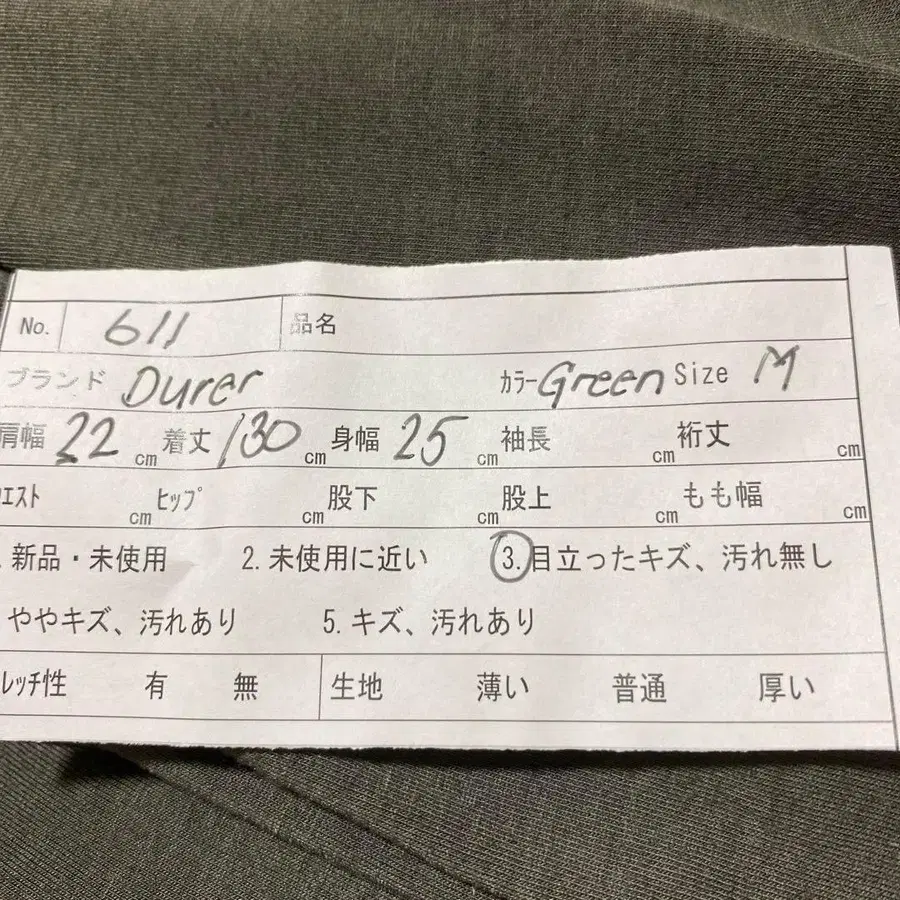 No. 611 品名
ブランド Durer カラー Green Size M
肩幅 22 cm 着丈 130 cm 身幅 25 cm 袖長 cm 裄丈 cm
エスト cm ヒップ cm 股下 cm 股上 cm もも幅 cm
. 新品・未使用 2. 未使用に近い 3. 目立ったキズ、汚れ無し
ややキズ、汚れあり 5. キズ、汚れあり
レッチ性 有 無 生地 薄い 普通 厚い